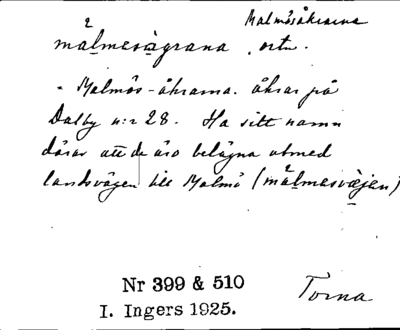 Malmöåkrarna
målmesvägrana, ortn.
"Malmös-åkrarna. åkrar på
Dalby n:r 28. Ha sitt namn
därav att de äro belägna utmed
landsvägen till Malmö (målmesväjen)
Nr 399 & 510
I. Ingers 1925.
Torna